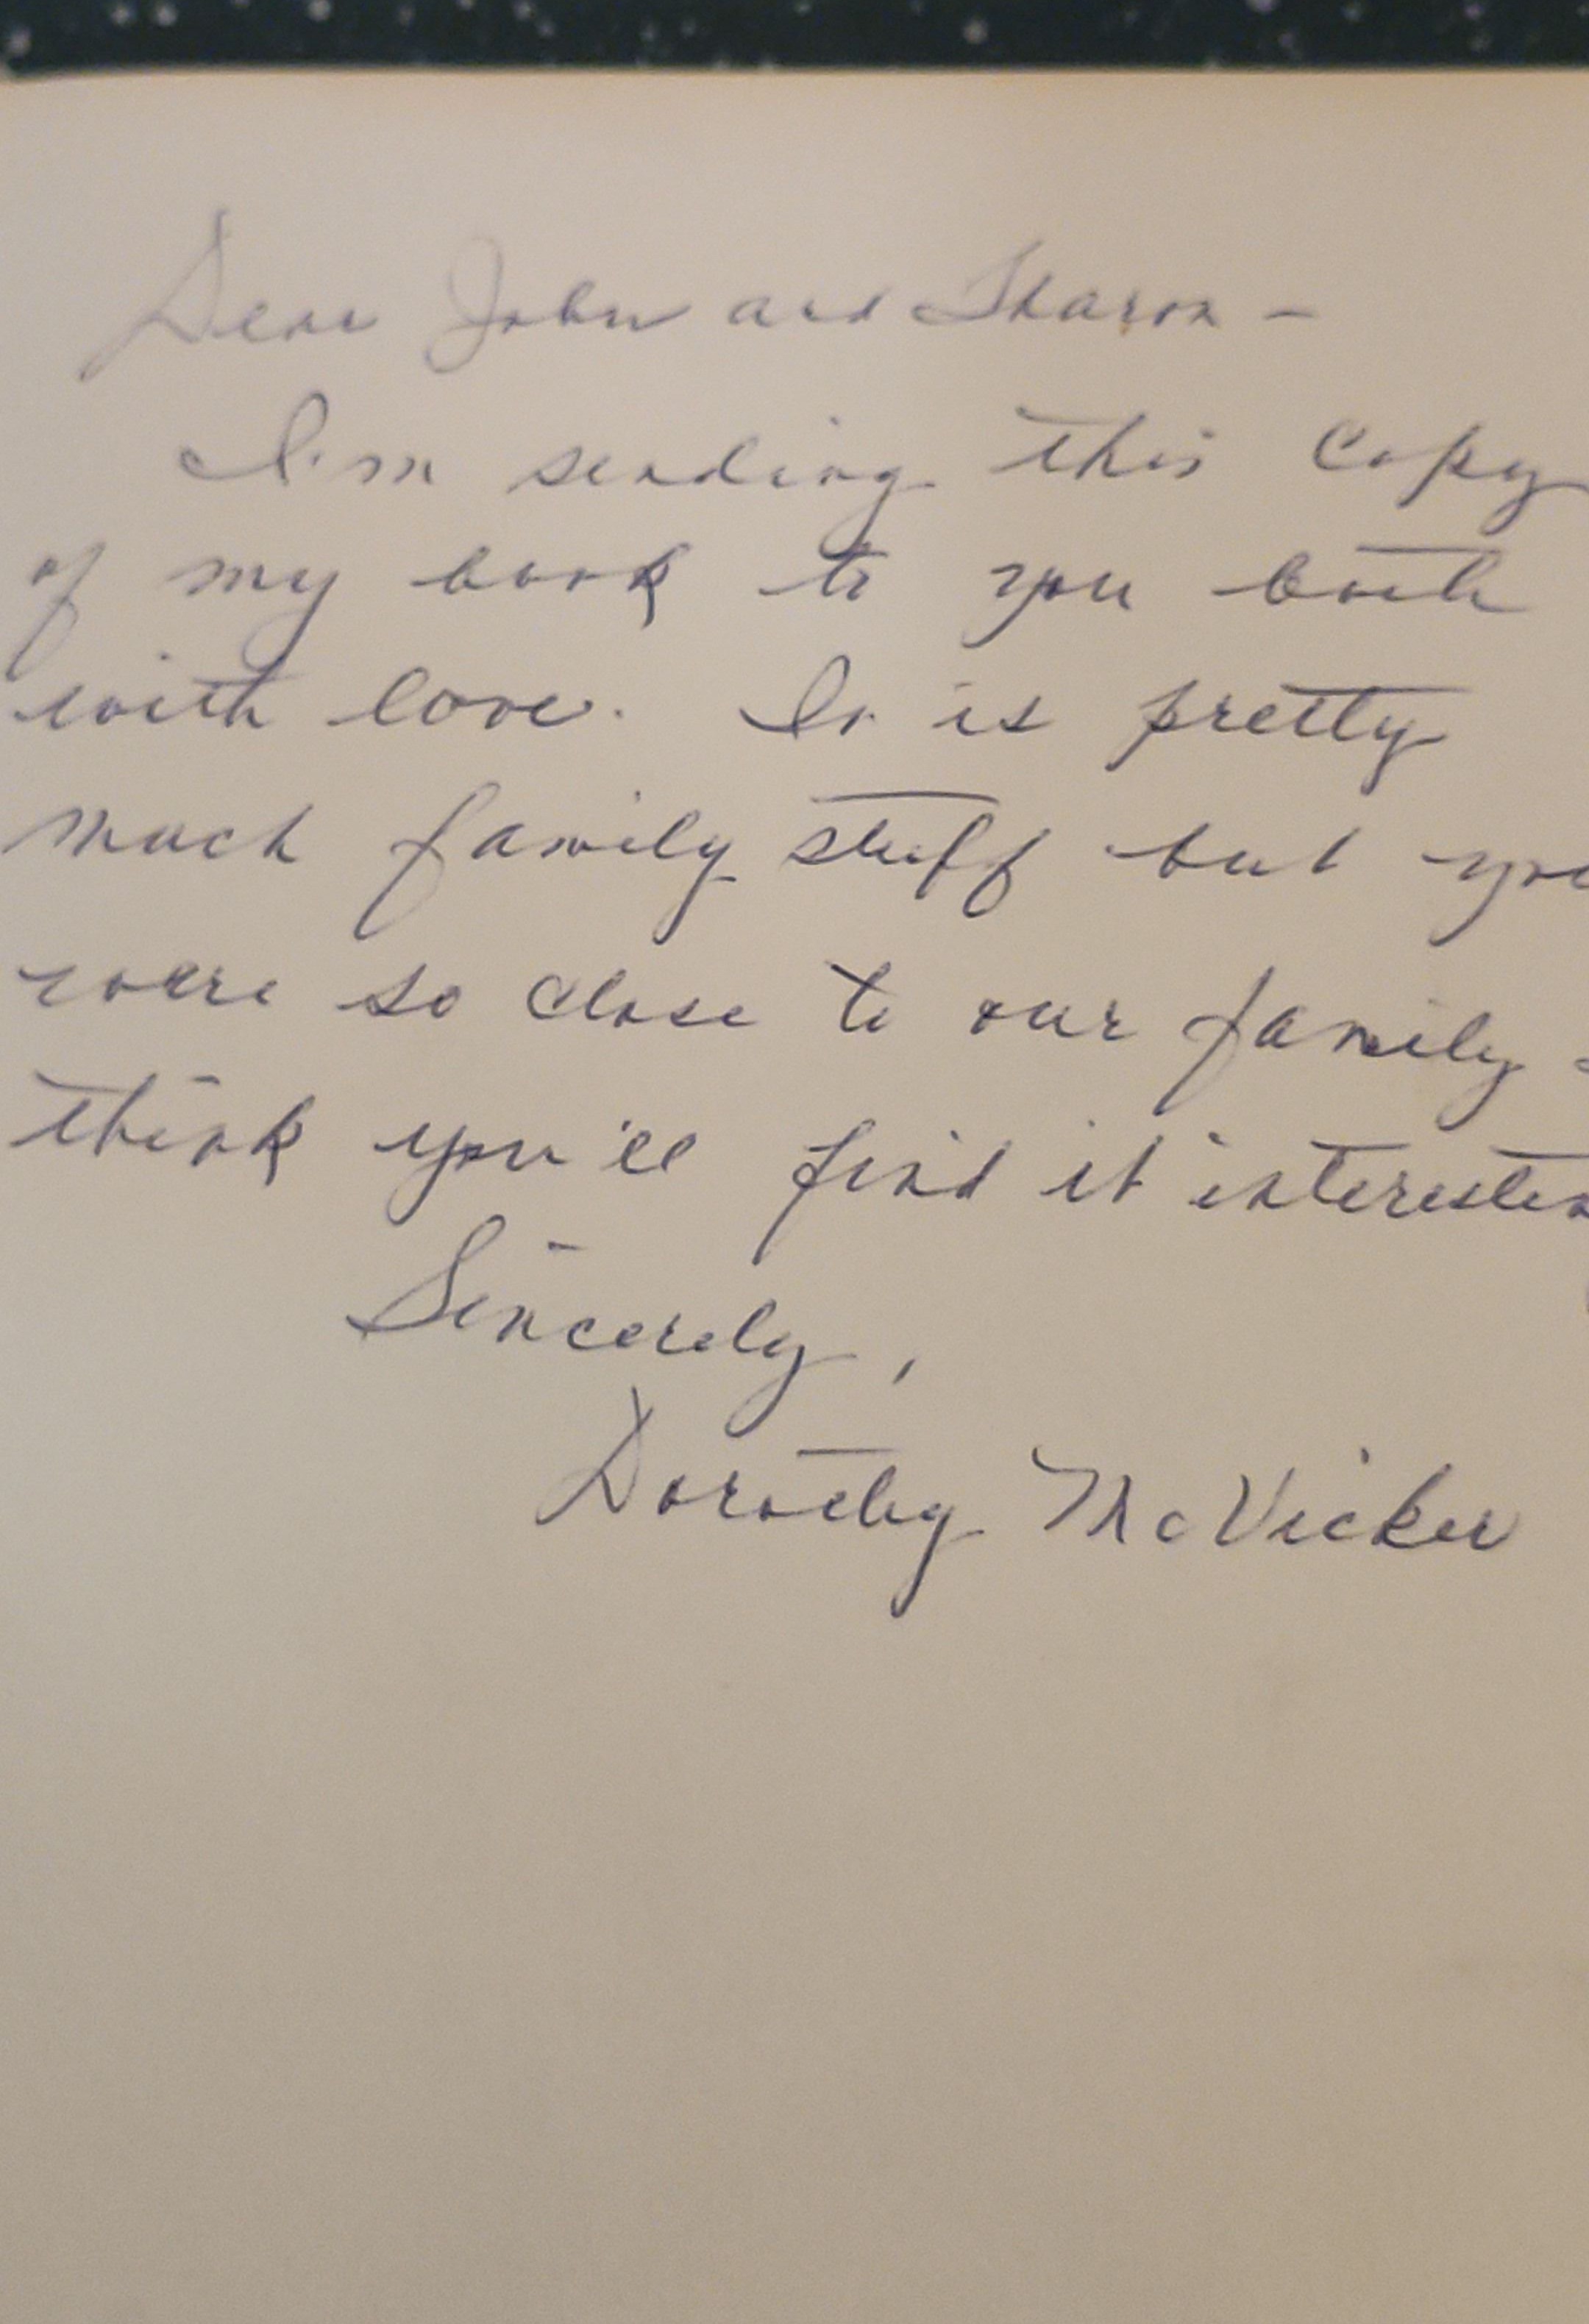 Dear John and Sharon -
I'm sending this copy
of my book to you both
with love. It is pretty
much family stuff but you
were so close to our family
think you'll find it interestin
Sincerely,
Dorothy McVicker